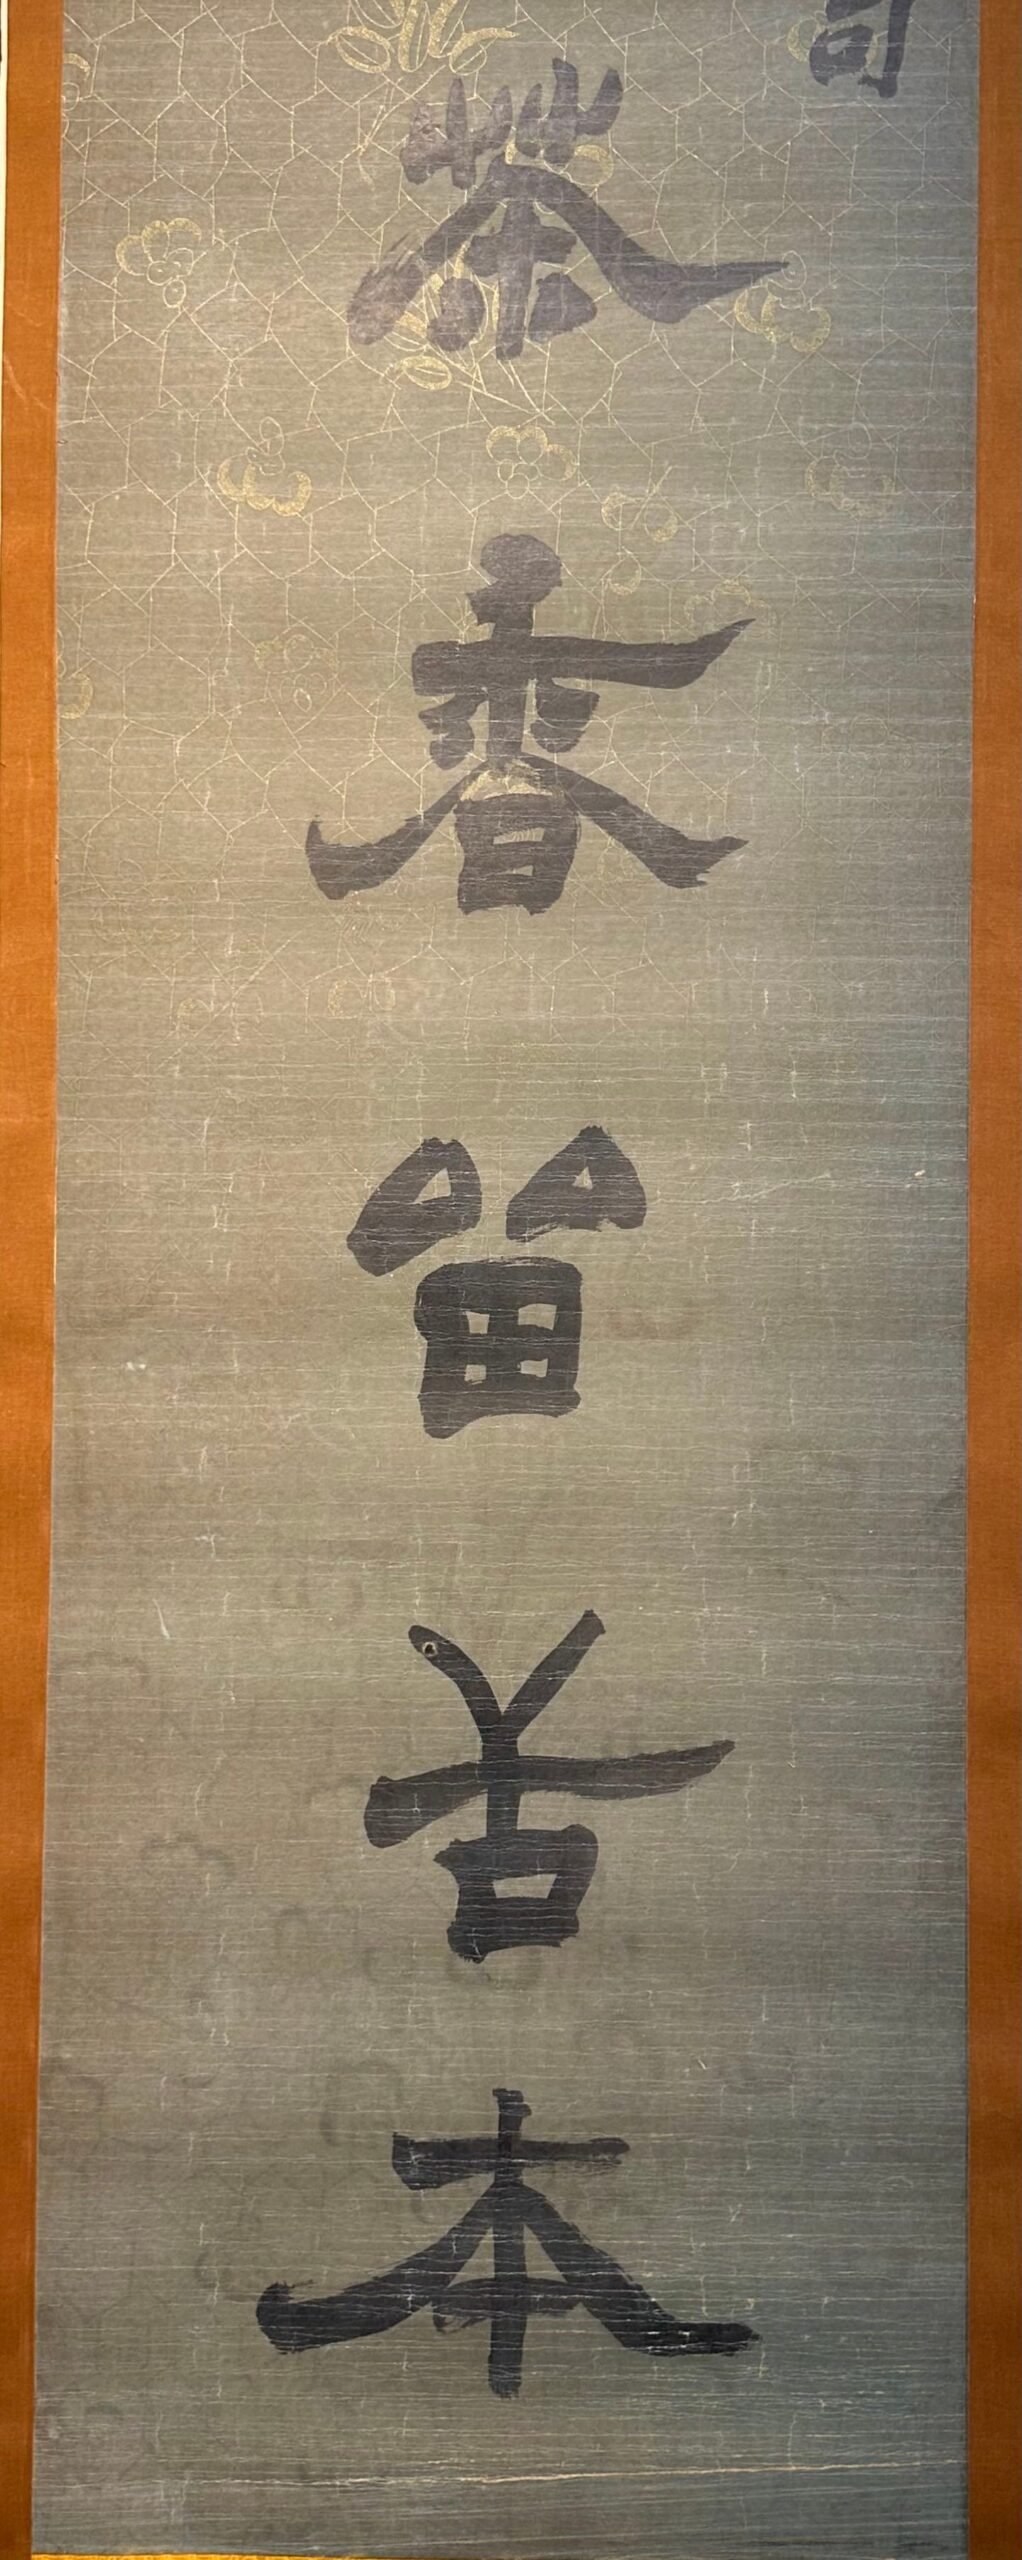 茶香留舌本